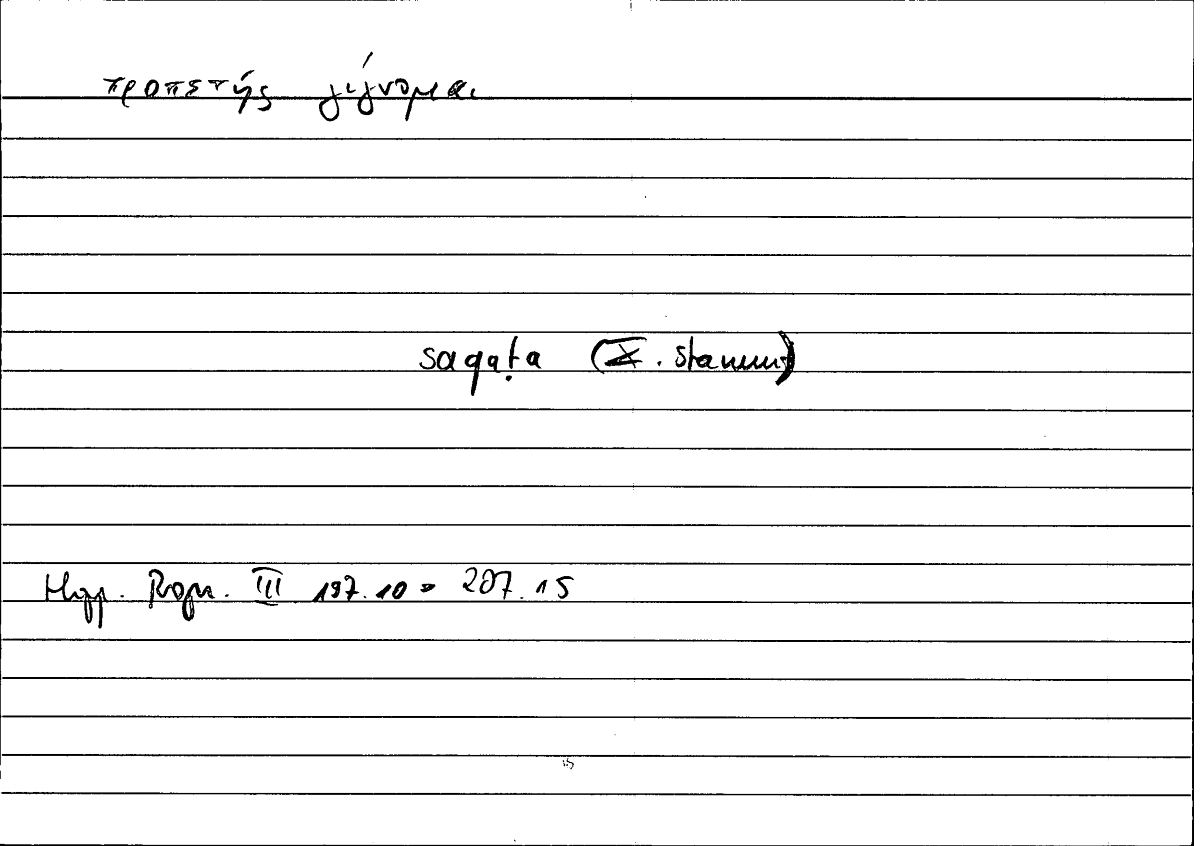 προπετής γίγνομαι
saqaṭa (I. stamm)
Hipp. Progn. III 197.10 = 207.15